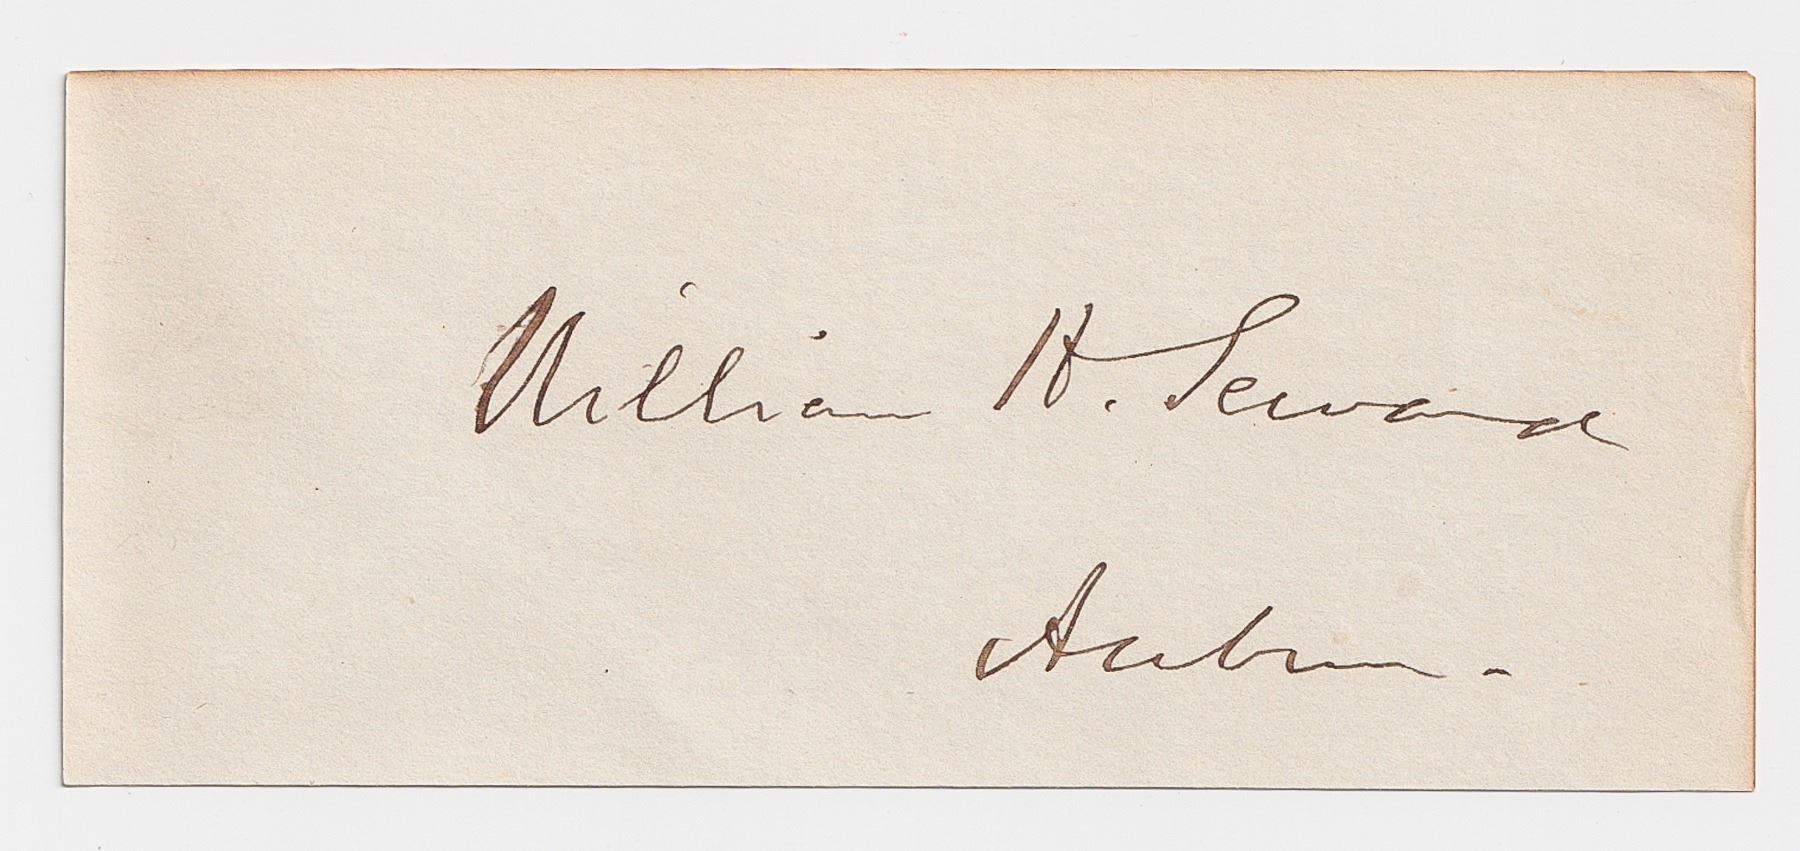 William H. Seward
Auburn.